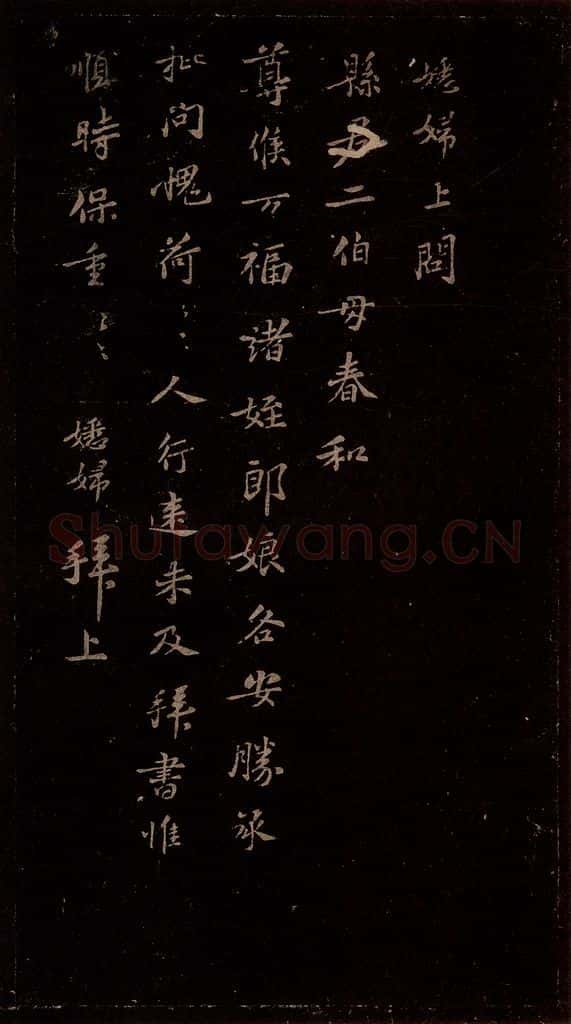 嬑婦上問
縣君二伯母春和
尊候万福諸姪郎娘各安勝承
批問愧荷〻人行速未及拜書惟
順時保重〻嬑婦拜上
Shufawang.CN